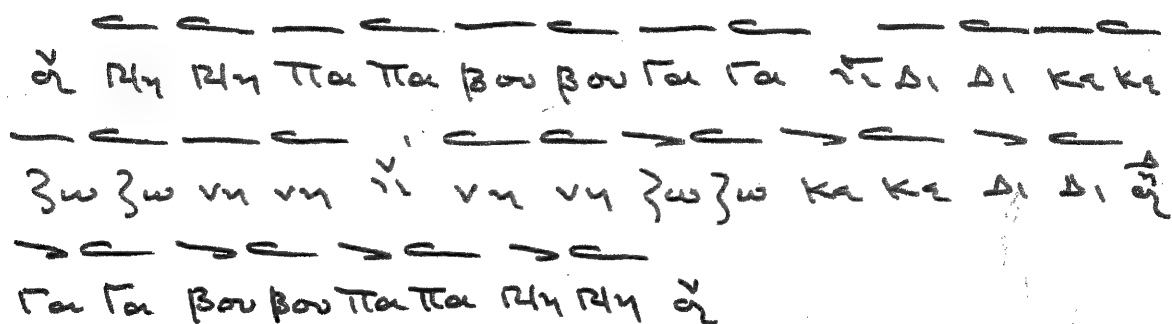 Νη Νη Πα Πα βου βου Γα Γα Δι Δι κε κε
ζω ζω νη νη νη νη ζω ζω κε κε Δι Δι
Γα Γα βου βου Πα Πα Νη Νη